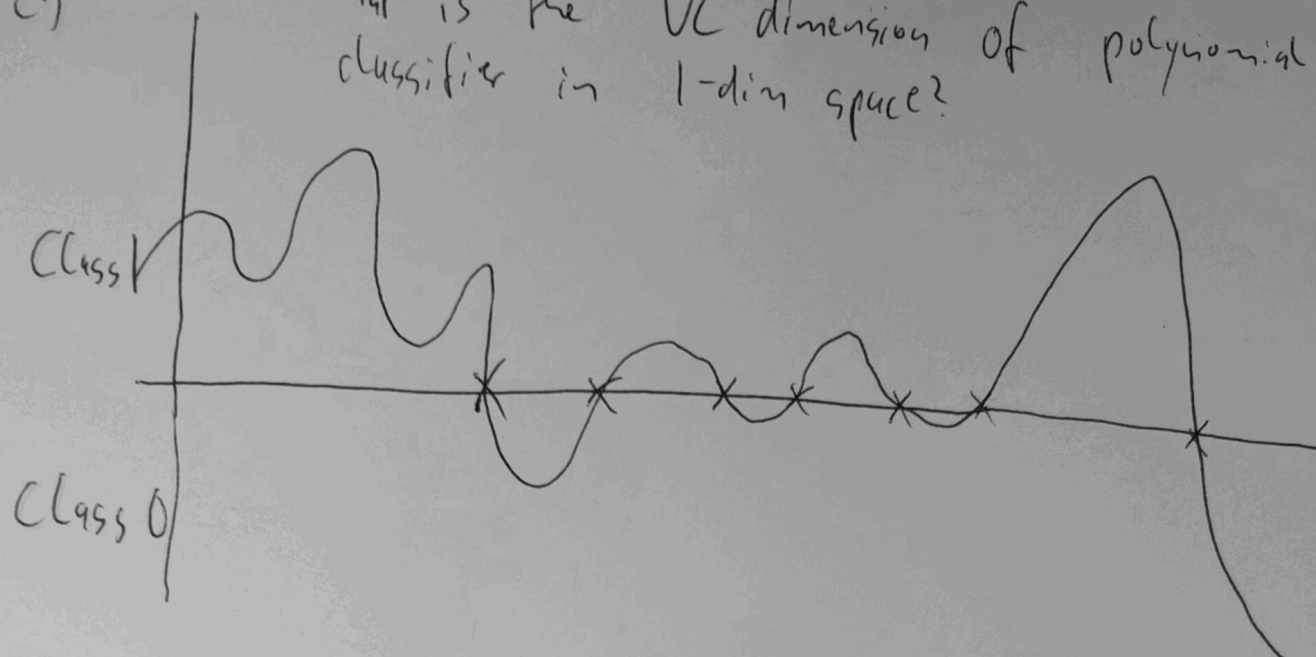 c)
is the VC dimension of polynomial
classifier in 1-dim space?
Class 1
Class 0